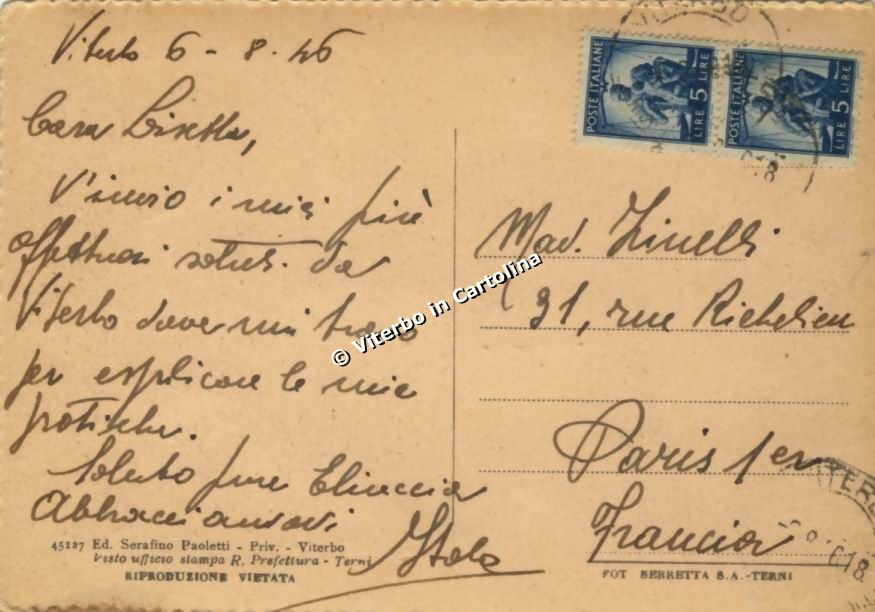 Viterbo 6 - 8 - 46
Cara Lisetta,
V'invio i miei più
affettuosi saluti da
Viterbo dove mi trovo
per esplicare le mie
pratiche.
Saluto pure Eliuccia
Abbracciandovi
Italo
45127 Ed. Serafino Paoletti - Priv. - Viterbo
Visto ufficio stampa R. Prefettura - Terni
RIPRODUZIONE VIETATA
POSTE ITALIANE
LIRE 5
POSTE ITALIANE
LIRE 5
Mad. Zinelli
31, rue Richelieu
Paris 1er
Francia
FOT BERRETTA S.A.-TERNI
© Viterbo in Cartolina